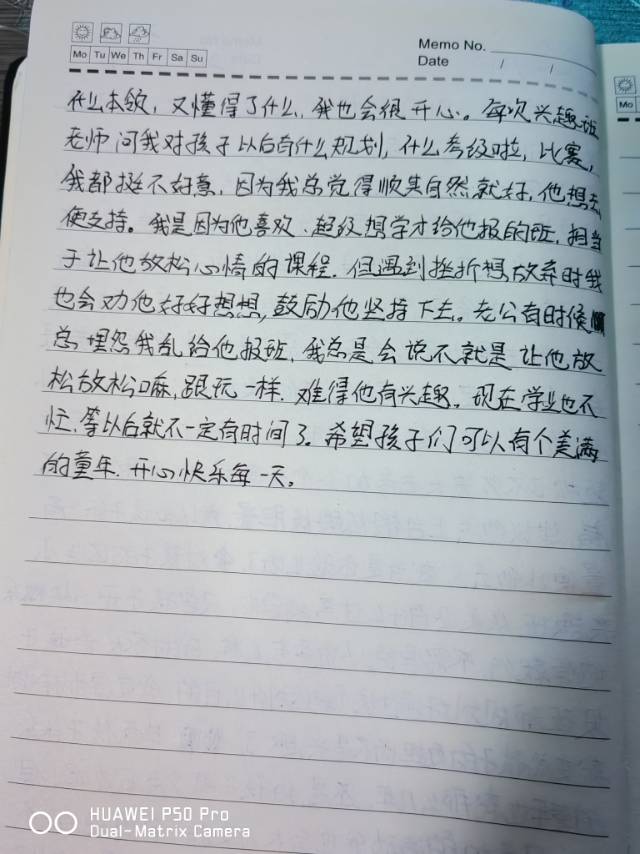 Memo No.
Date / /
Mo Tu We Th Fr Sa Su
什么本领，又懂得了什么，我也会很开心。每次兴趣班
老师问我对孩子以后有什么规划，什么考级啦，比赛，
我都挺不好意，因为我总觉得顺其自然就好，他想去
便支持。我是因为他喜欢、超级想学才给他报的班，相当
于让他放松心情的课程，但遇到挫折想放弃时我
也会劝他好好想想，鼓励他坚持下去。老公有时候
总埋怨我乱给他报班，我总是会说不就是让他放
松放松嘛，跟玩一样，难得他有兴趣，现在学业也不
忙，等以后就不一定有时间了。希望孩子们可以有个美满
的童年，开心快乐每一天。
Mo
HUAWEI P50 Pro
Dual-Matrix Camera